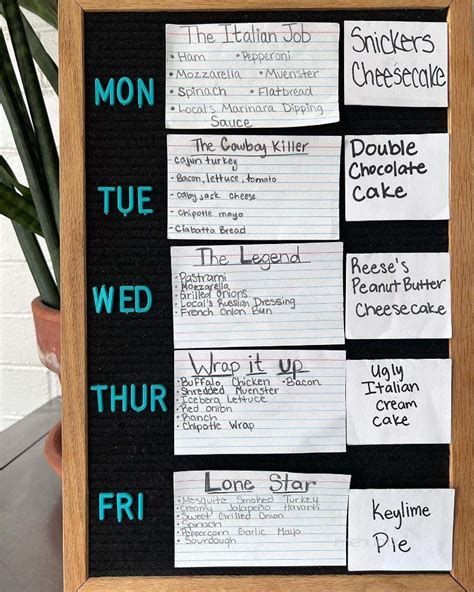 MON
The Italian Job
• Ham • Pepperoni
• Mozzarella • Muenster
• Spinach • Flatbread
• Local's Marinara Dipping
Sauce
Snickers
Cheesecake
TUE
The Cowboy Killer
- Cajun turkey
- Bacon, lettuce, tomato
- Coby jack cheese
- Chipotle mayo
- Ciabatta Bread
Double
Chocolate
Cake
WED
The Legend
• Pastrami
• Mozzarella
• Grilled onions
• Local's Russian Dressing
• French Onion Bun
Reese's
Peanut Butter
Cheesecake
THUR
Wrap it up
• Buffalo Chicken • Bacon
• Shredded Muenster
• Iceberg Lettuce
• Red onion
• Ranch
• Chipotle Wrap
Ugly
Italian
Cream
Cake
FRI
Lone Star
• Mesquite Smoked Turkey
• Creamy Jalapeño Havarti
• Sweet Grilled Onion
• Spinach
• Peppercorn Garlic Mayo
• Sourdough
Keylime
Pie